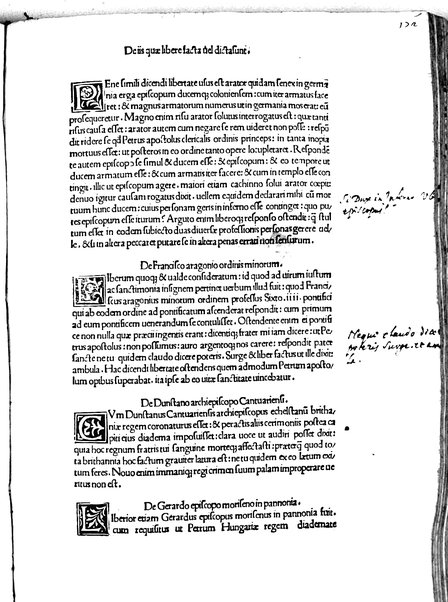 De iis quæ libere facta vel dicta sunt.
PEne simili dicendi libertate usus est arator quidam senex in germa
nia erga episcopum ducemq; coloniensem: cum iter armatus face
ret: & magnus armatorum numerus ut in germania mos erat: eum
prosequeretur. Magno enim risu arator solutus interrogatus est: quæ tanti
risus causa esset: arator autem cum negare se rem uideret non posse: respōdit
ridere se qđ Petrus apostolus clericalis ordinis princeps: in tanta inopia
mortuus esset: ut posteros in eo ordine tanto opere locupletaret. Respondē
te autem episcopo se simul & ducem esse: & episcopum: & eo tempore ut
ducem armatum esse: & cum armatis iter facere: & cum in templo esse con
tingit. illic ut episcopum agere. maiori etiam cachinno solui arator cœpit:
denuo igitur causam rogatus dixit. uellem equidem declarari mihi cū mor
tuum hunc ducem: cuius personam geris in inferno esse continget: quo pu
tes episcopum esse iturum? Arguto enim liberoq; responso ostendit: q̄ stul
tum esset: in eodem subiecto duas diuersæ professionis personas gerere uel
le. & si in altera peccaret putare se in altera penas errati non sensurum.
De Francisco aragonio ordinis minorum.
LIberum quoq; & ualde consyderatum: id quod ad uirum iustum
ac sanctimonia insignem pertinet uerbum illud fuit: quod Franci
scus aragonius minorum ordinem professus Sixto .iiii. pontifici
qui ab eodem ordine ad pontificatum ascenderat respondit: cum primum
ad eum pontificem uenerandum se contulisset. Ostendente enim ei pontifi
ce non nulla quæ præcii ingentis erant: dicentiq; frater mi iam dicere: ut Pe
trus apostolus: non possumus: auro argentoq; nos carere: respondit pater
sancte ne tu quidem claudo dicere poteris. Surge & liber factus ut ille diuīt:
ambula. Hac dicendi libertate ostendens quem admodum Petrum aposto/
lum optibus superabat. ita ipse ab eo uitæ sanctitate uincebatur.
De Dunstano archiepiscopo Cantuariensi.
CVm Dunstanus Cantuariensis archiepiscopus echelstanū britha/
niæ regem coronaturus esset: & peractis aliis cerimoniis postea ca
piti eius diadema imposuisset: clara uoce ut audiri posset dixit:
quia hoc regnum fratris tui sanguine morteq; affectasti: præterq̄ quod to/
ta brithannia hoc factum grauiter latura est: ne tu quidem ex eo lætum exi
tum feres. Nouo enim immaniq; regi crimen suum palam improperare ue
ritus non est.
De Gerardo episcopo moriseno in pannonia.
LIberior etiam Gerardus episcopus morisenus in pannonia fuit.
cum requisitus ut Petrum Hungariæ regem diademate
Si Dux in Inferno Vbi
episcopus
Nequi claudo dicere
poteris Surge. et ambu
la.